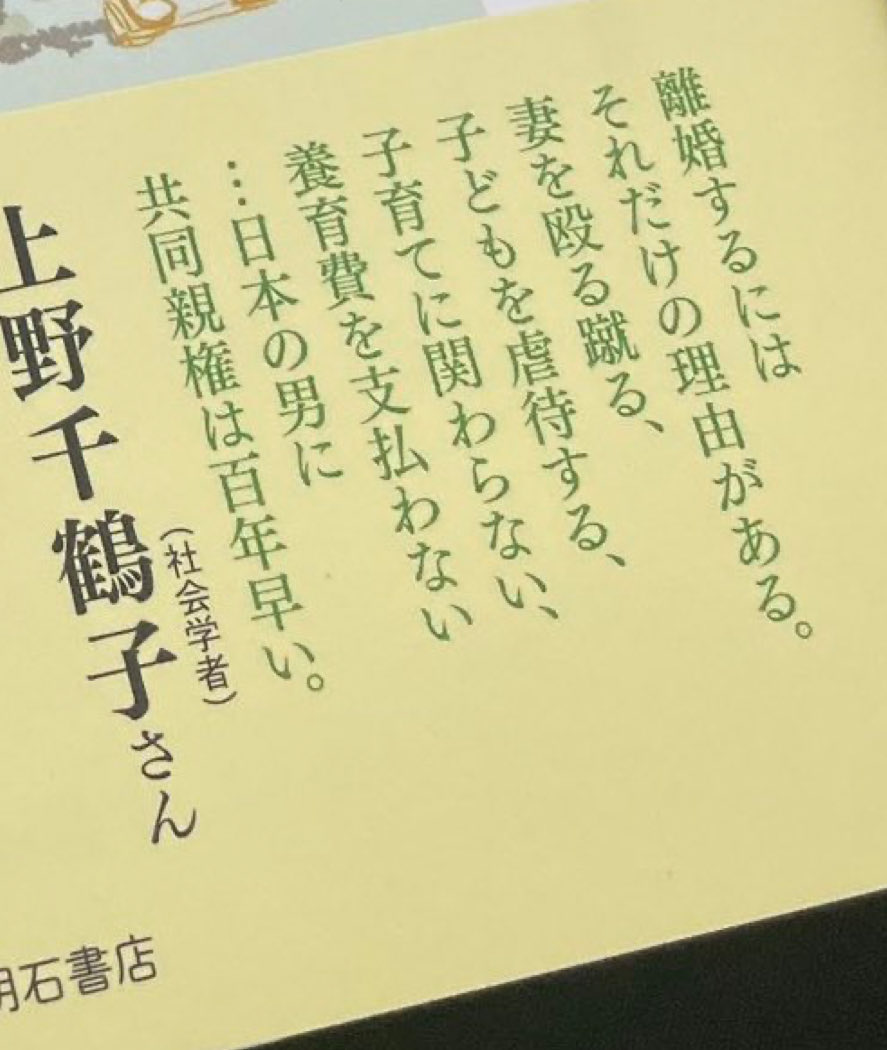 離婚するには
それだけの理由がある。
妻を殴る蹴る、
子どもを虐待する、
子育てに関わらない、
養育費を支払わない
…日本の男に
共同親権は百年早い。
(社会学者)
上野千鶴子さん
明石書店